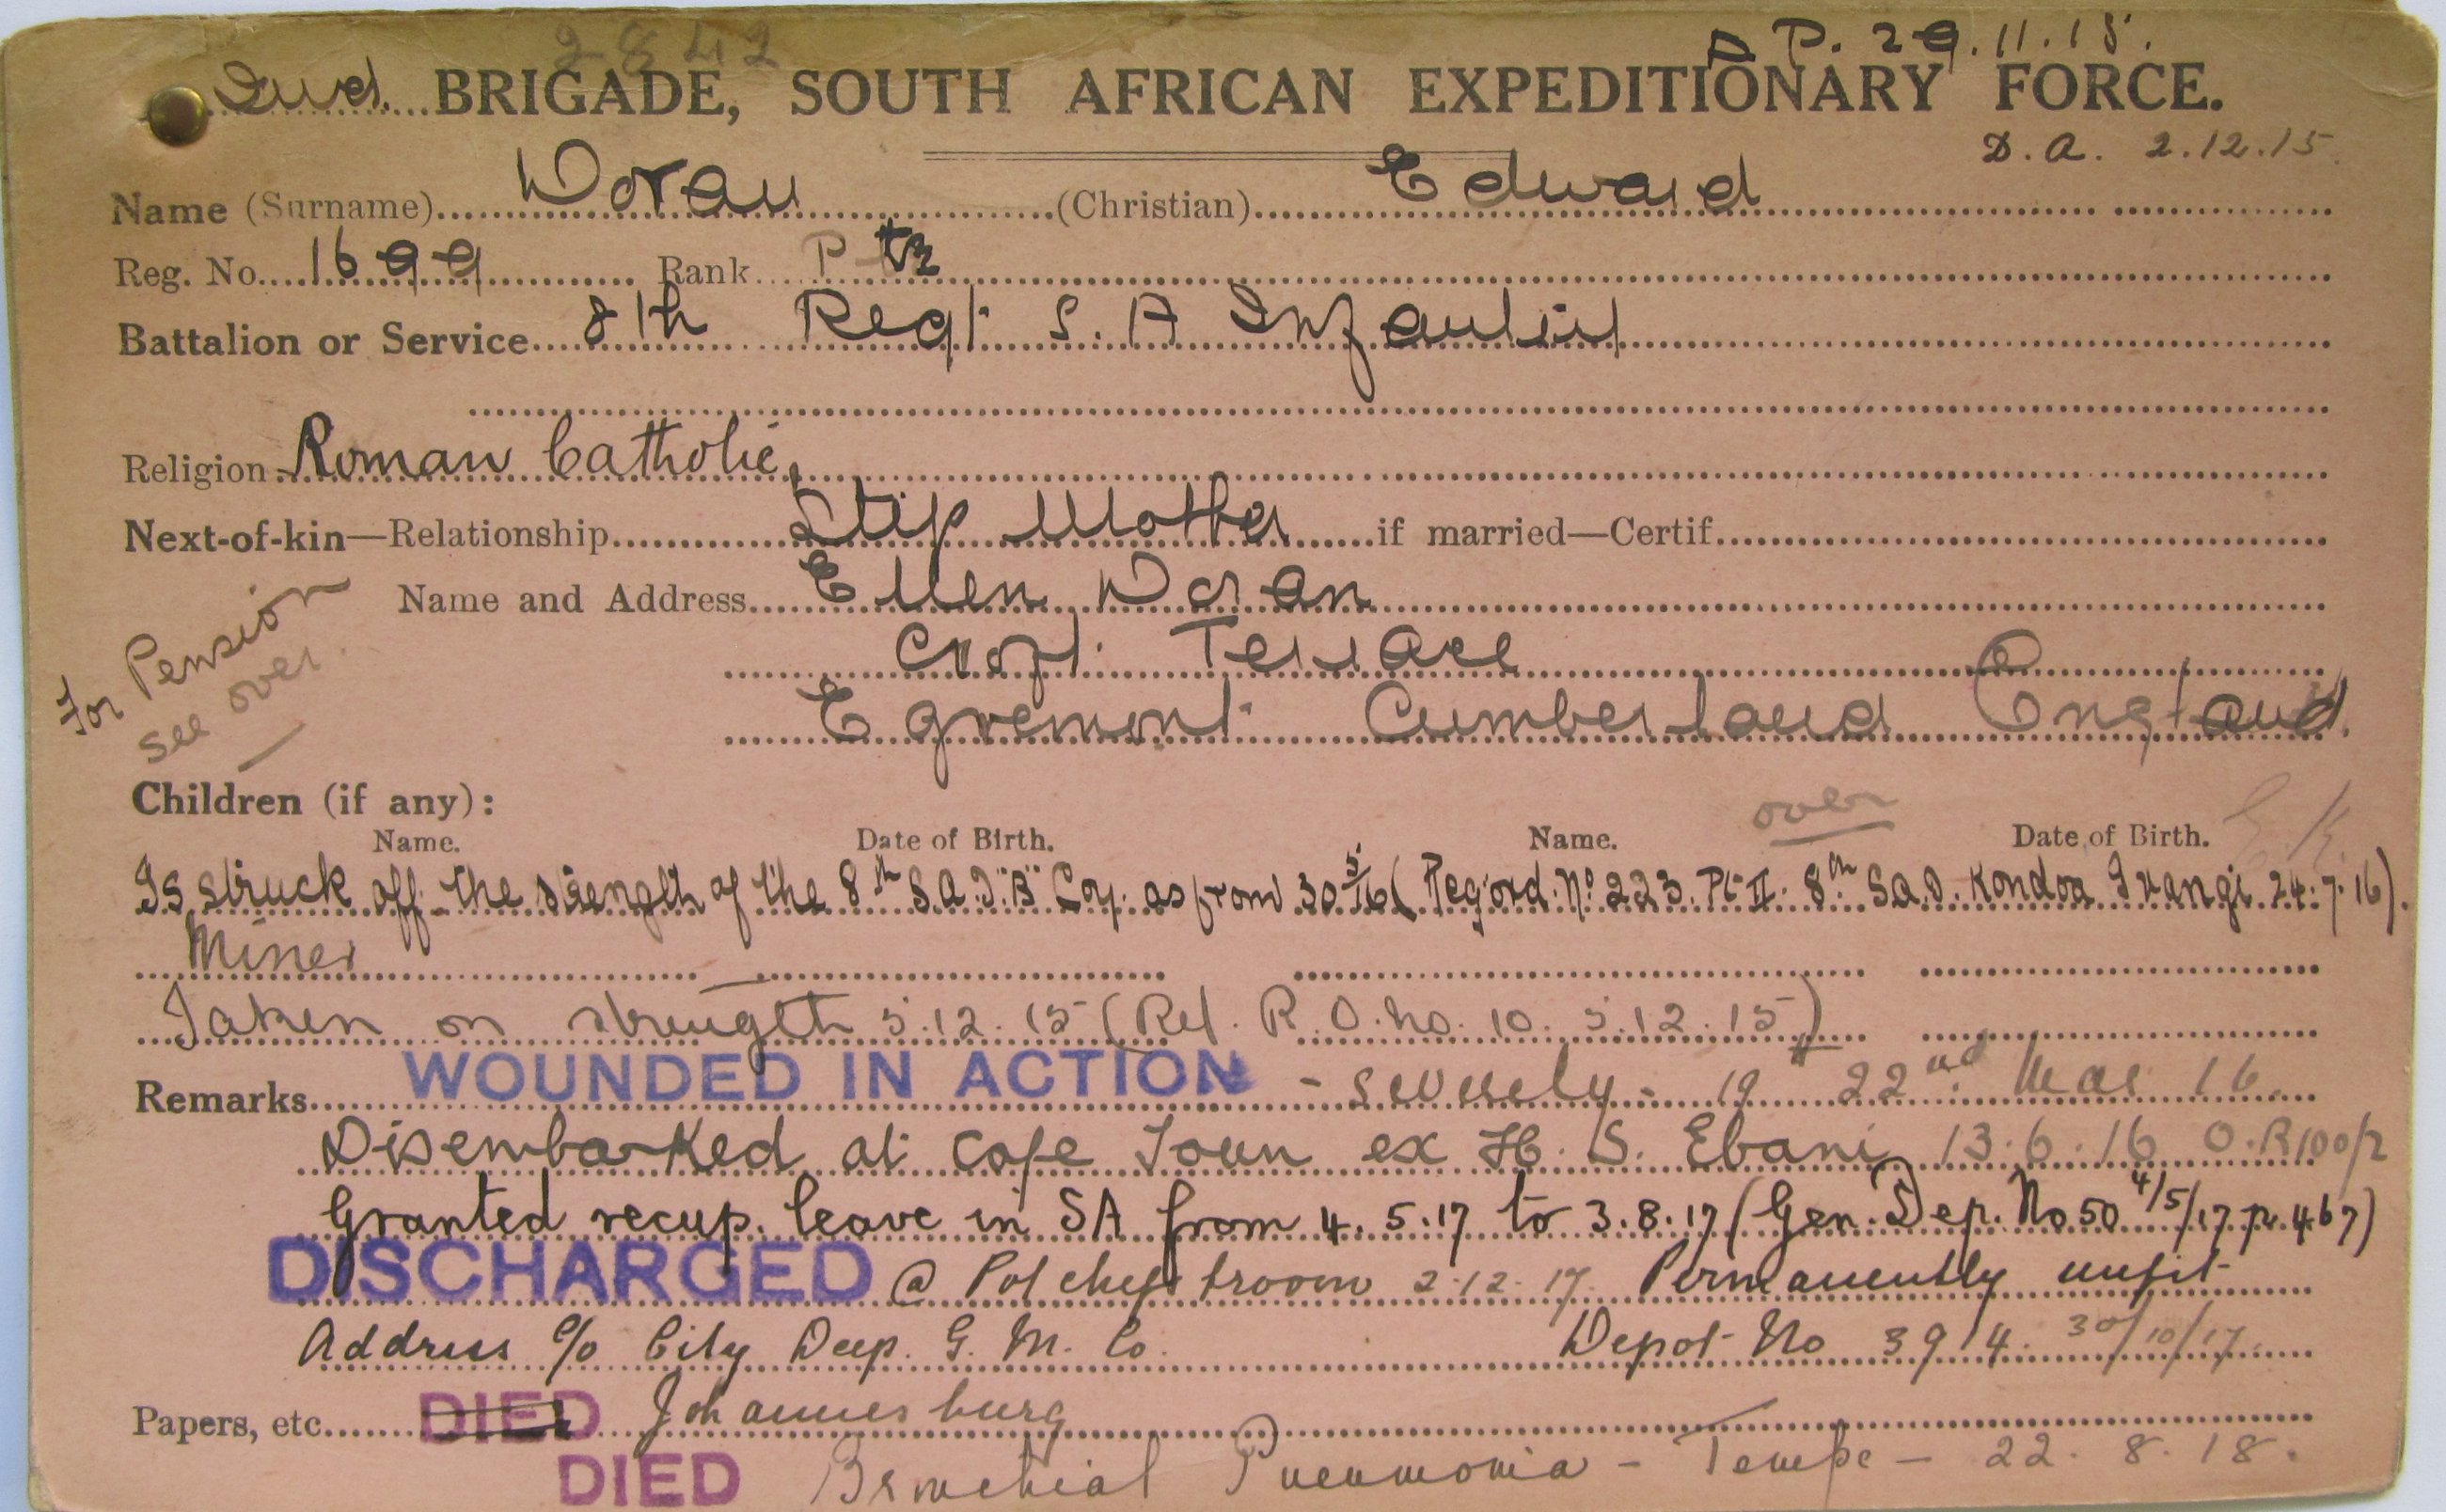 2842
A P. 29.11.15.
2nd. BRIGADE, SOUTH AFRICAN EXPEDITIONARY FORCE.
D.A. 2.12.15.
Name (Surname) Doran (Christian) Edward
Reg. No. 1699 Rank Pte
Battalion or Service 8th Regt S. A Infantry
Religion Roman Catholic,
Next-of-kin—Relationship Step Mother if married—Certif
Name and Address Ellen Doran
Croft Terrace
Egremont Cumberland England.
For Pension
see over.
Children (if any):
over
Name. Date of Birth. Name. Date of Birth.
Is struck off the strength of the 8th S.A.I. "B" Coy. as from 30/5/16 (Reg ord. No 223. Pt II. 8th S.A.I. Kondoa Irangi 24.7.16).
Miner
Taken on strength 5.12.15 (Rel. R.O. No. 10. 5.12.15)
Remarks WOUNDED IN ACTION - severely - 19 22nd 16.
Disembarked at Cape Town ex H. S. Ebani 13.6.16 O.R100/2
Granted recup. leave in SA from 4.5.17 to 3.8.17 (Gen. Dep. No 50 4/5/17 p. 467)
DISCHARGED @ Potchefstroom 2.12.17. Permanently unfit
Address c/o City Deep. G. M. Co. Depot No 3914. 30/10/17.
Papers, etc. DIED Johannesburg
DIED Bronchial Pneumonia - Tempe - 22.8.18.